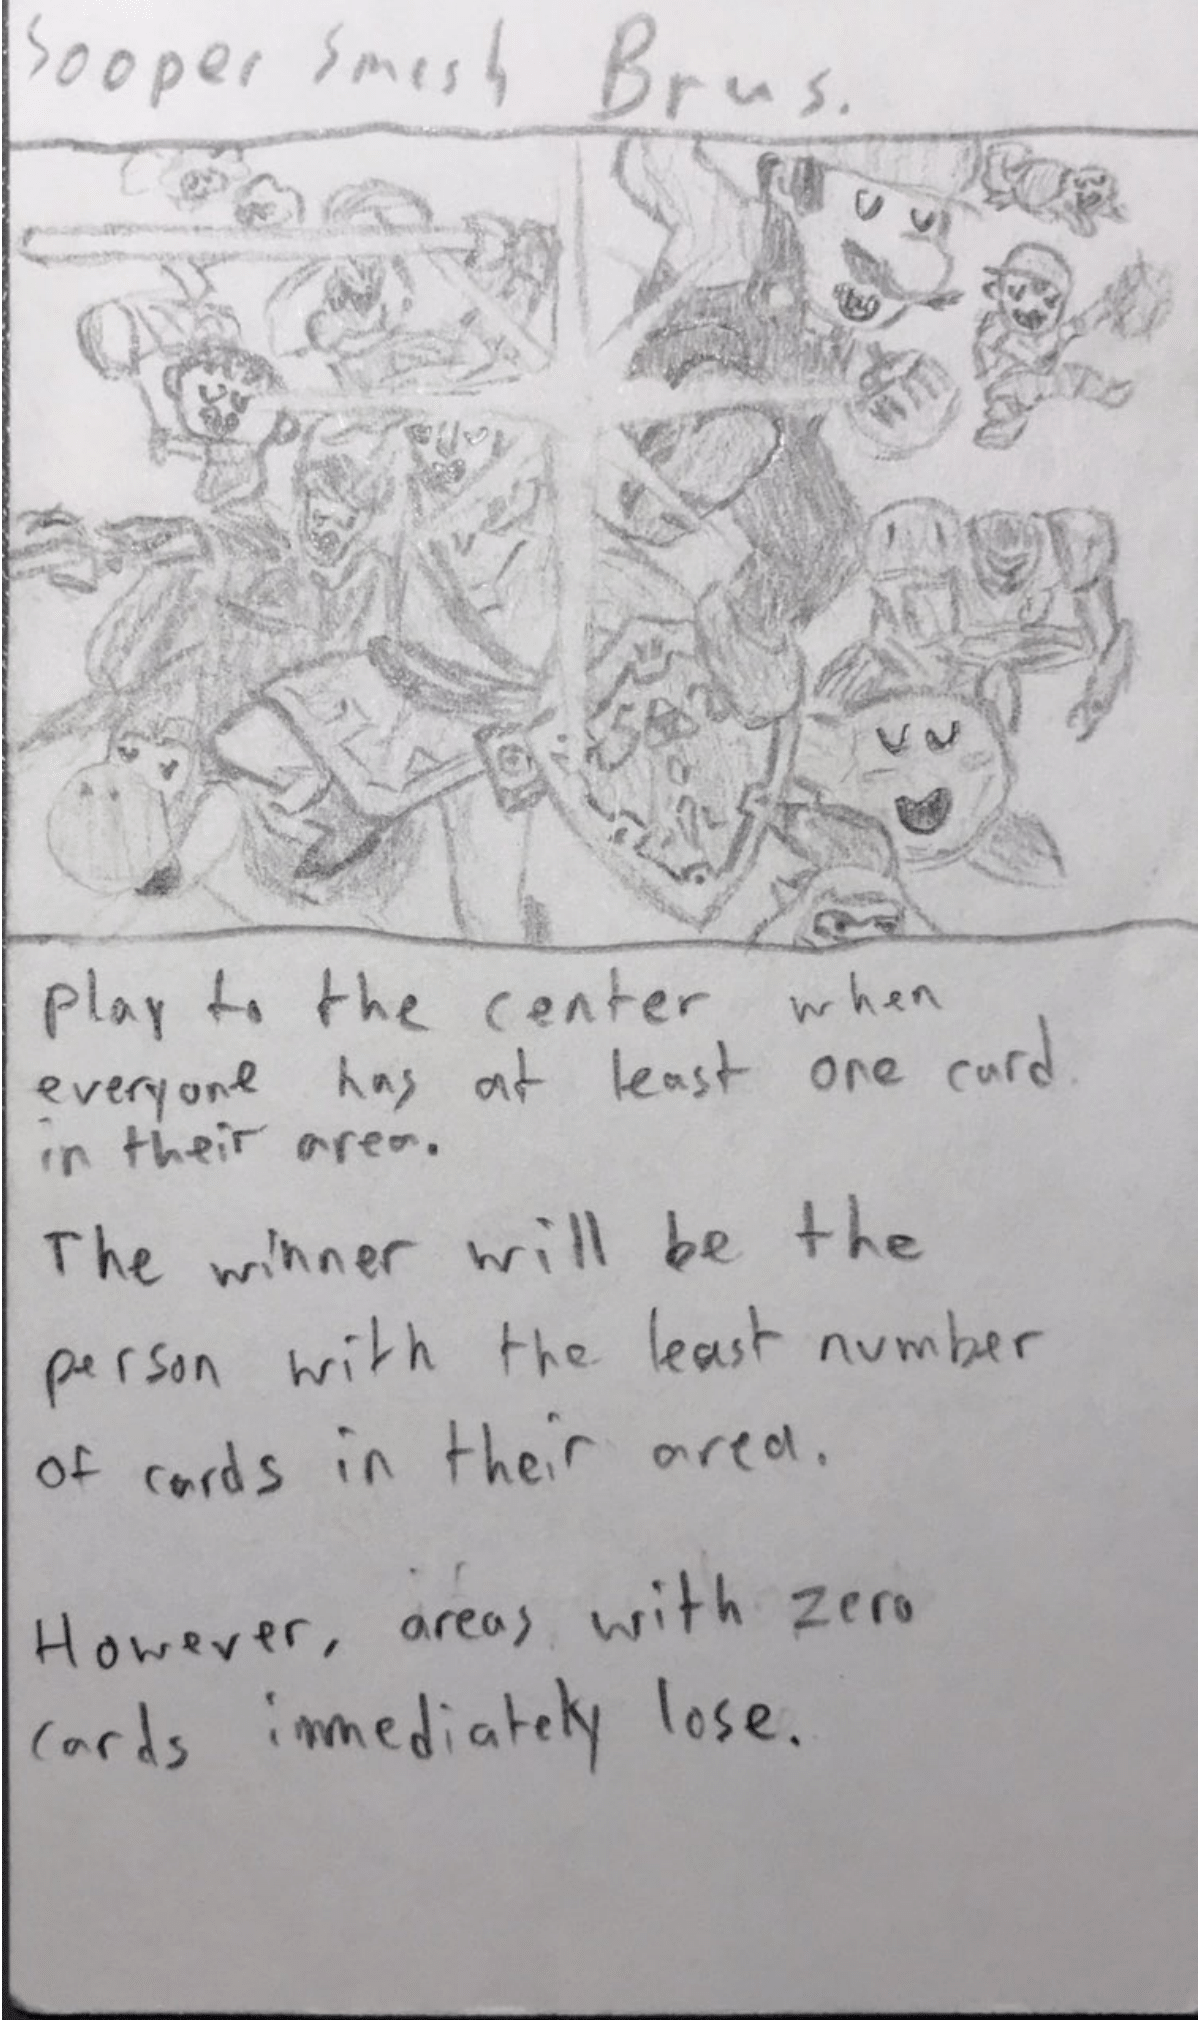 Sooper Smesh Brus.
play to the center when
everyone has at least one card
in their area.
The winner will be the
person with the least number
of cards in their area.
However, areas with zero
cards immediately lose.